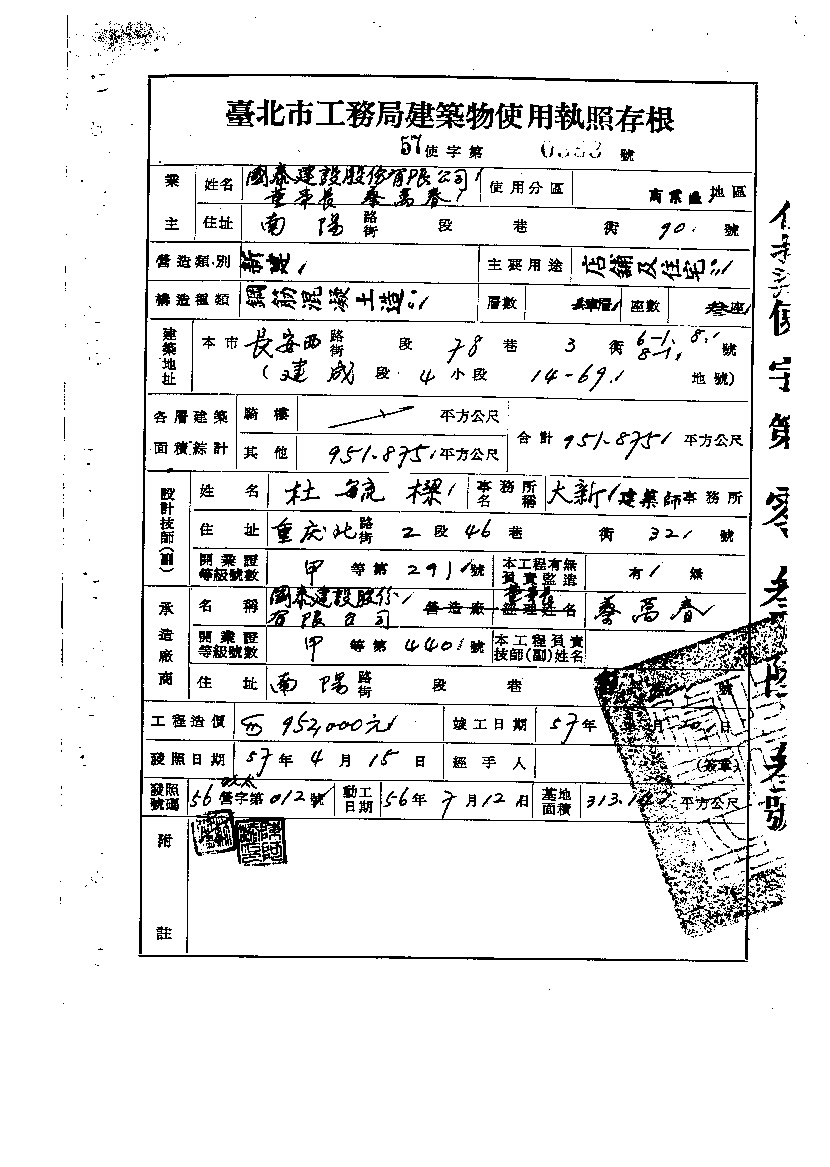 臺北市工務局建築物使用執照存根
57使字第 0353 號
業主 姓名 國泰建設股份有限公司 董事長 蔡萬春 使用分區 商業區 地區
住址 南陽 路街 段 巷 衖 90. 號
營造類別 新建 主要用途 店舖及住宅
構造種類 鋼筋混凝土造 層數 層 座數 叁座
建築地址 本市 長安西 路街 段 78 巷 3 衖 6-1. 8. 8-1. 號
(建成 段 4 小段 14-69. 地號)
各層建築面積綜計 騎樓 平方公尺 合計 951.875 平方公尺
其他 951.875 平方公尺
設計技師(副) 姓名 杜 樑 事務所名稱 大新 建築師事務所
住址 重慶北 路街 2 段 46 巷 衖 32 號
開業證等級號數 甲 等第 291 號 本工程有無負責監造 有 無
承造廠商 名稱 國泰建設股份有限公司 營造廠 董事長 經理姓名 蔡萬春
開業證等級號數 甲 等第 440 號 本工程負責技師(副)姓名
住址 南陽 路街 段 巷 號
工程造價 952,000元 竣工日期 57年 月 日
發照日期 57年 4 月 15 日 經手人 (簽章)
發照號碼 56 營字第 012 號 動工日期 56年 7 月 12 日 基地面積 313.14 平方公尺
附註
使字第零叁 叁號